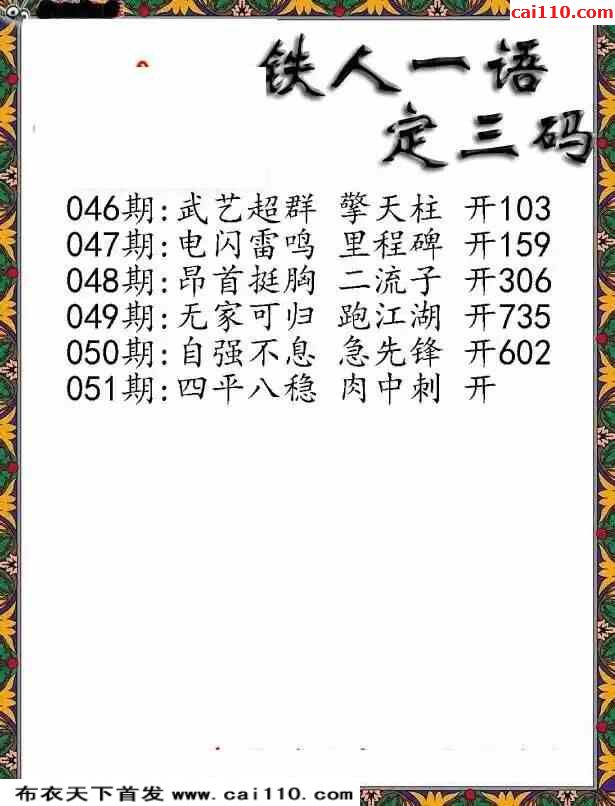 cai110.com
铁人一语
定三码
046期:武艺超群 擎天柱 开103
047期:电闪雷鸣 里程碑 开159
048期:昂首挺胸 二流子 开306
049期:无家可归 跑江湖 开735
050期:自强不息 急先锋 开602
051期:四平八稳 肉中刺 开
布衣天下首发 www.cai110.com